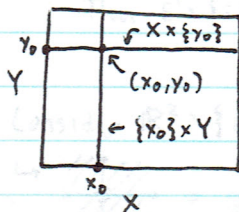 y₀
X × {y₀}
Y
(x₀, y₀)
{x₀} × Y
x₀
X